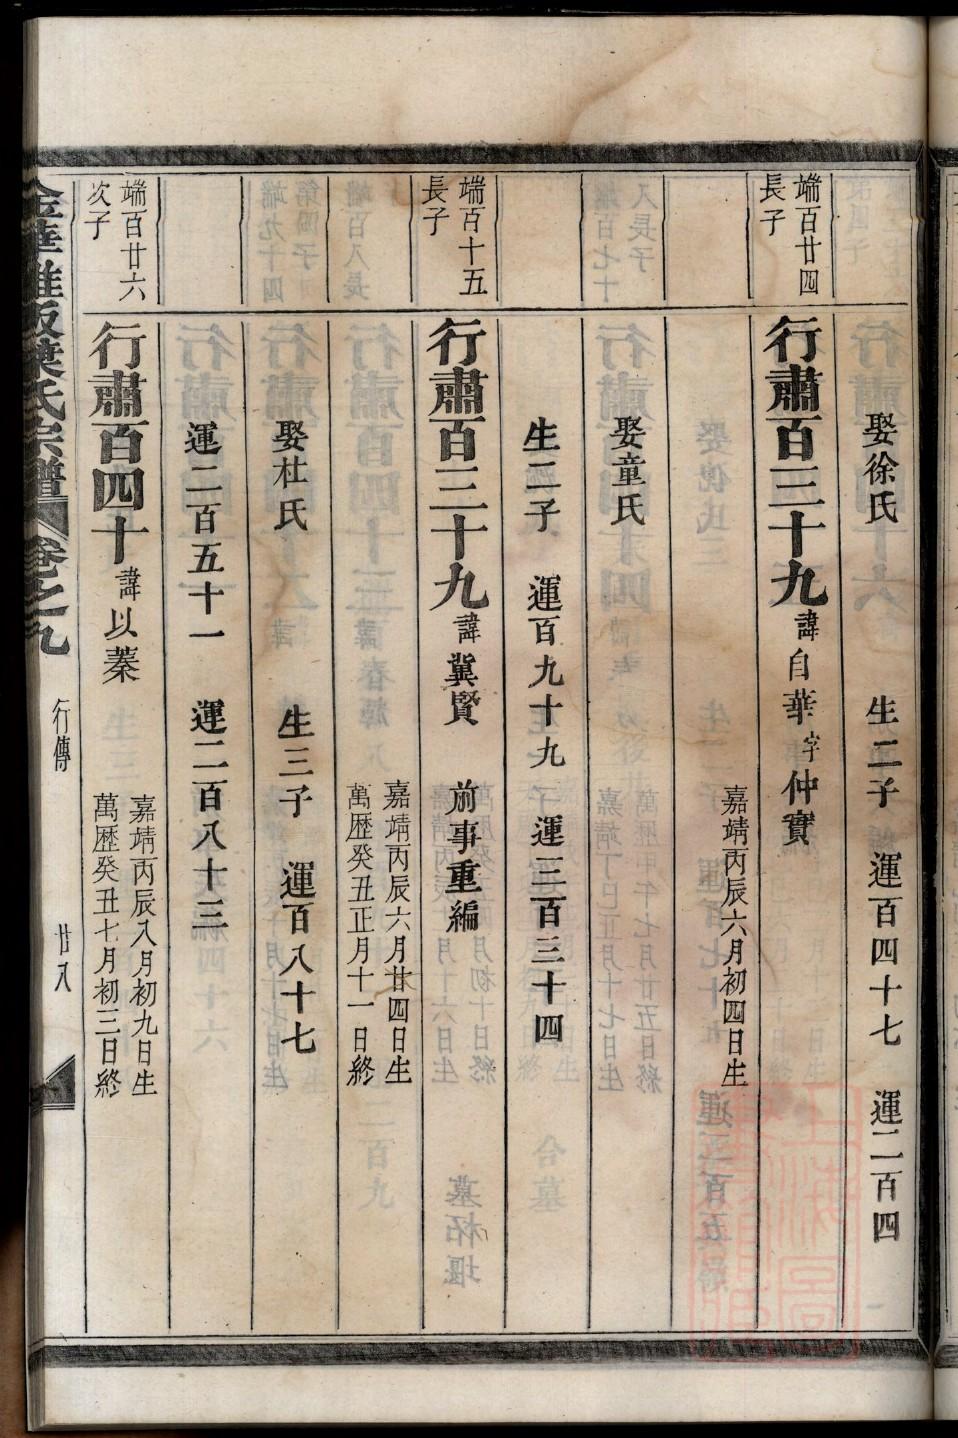 娶徐氏 生二子 運百四十七 運二百四
端百廿四
長子
行肅百三十九 諱自華 字仲實
嘉靖丙辰六月初四日生
娶童氏
生二子 運百九十九 運三百三十四
端百十五
長子
行肅百三十九 諱冀賢 前事重編
嘉靖丙辰六月廿四日生
萬歷癸丑正月十一日終
娶杜氏 生三子 運百八十七
運二百五十一 運二百八十三
端百廿六
次子
行肅百四十 諱以蓁
嘉靖丙辰八月初九日生
萬歷癸丑七月初三日終
葉氏宗譜 卷之九 行傳 廿八